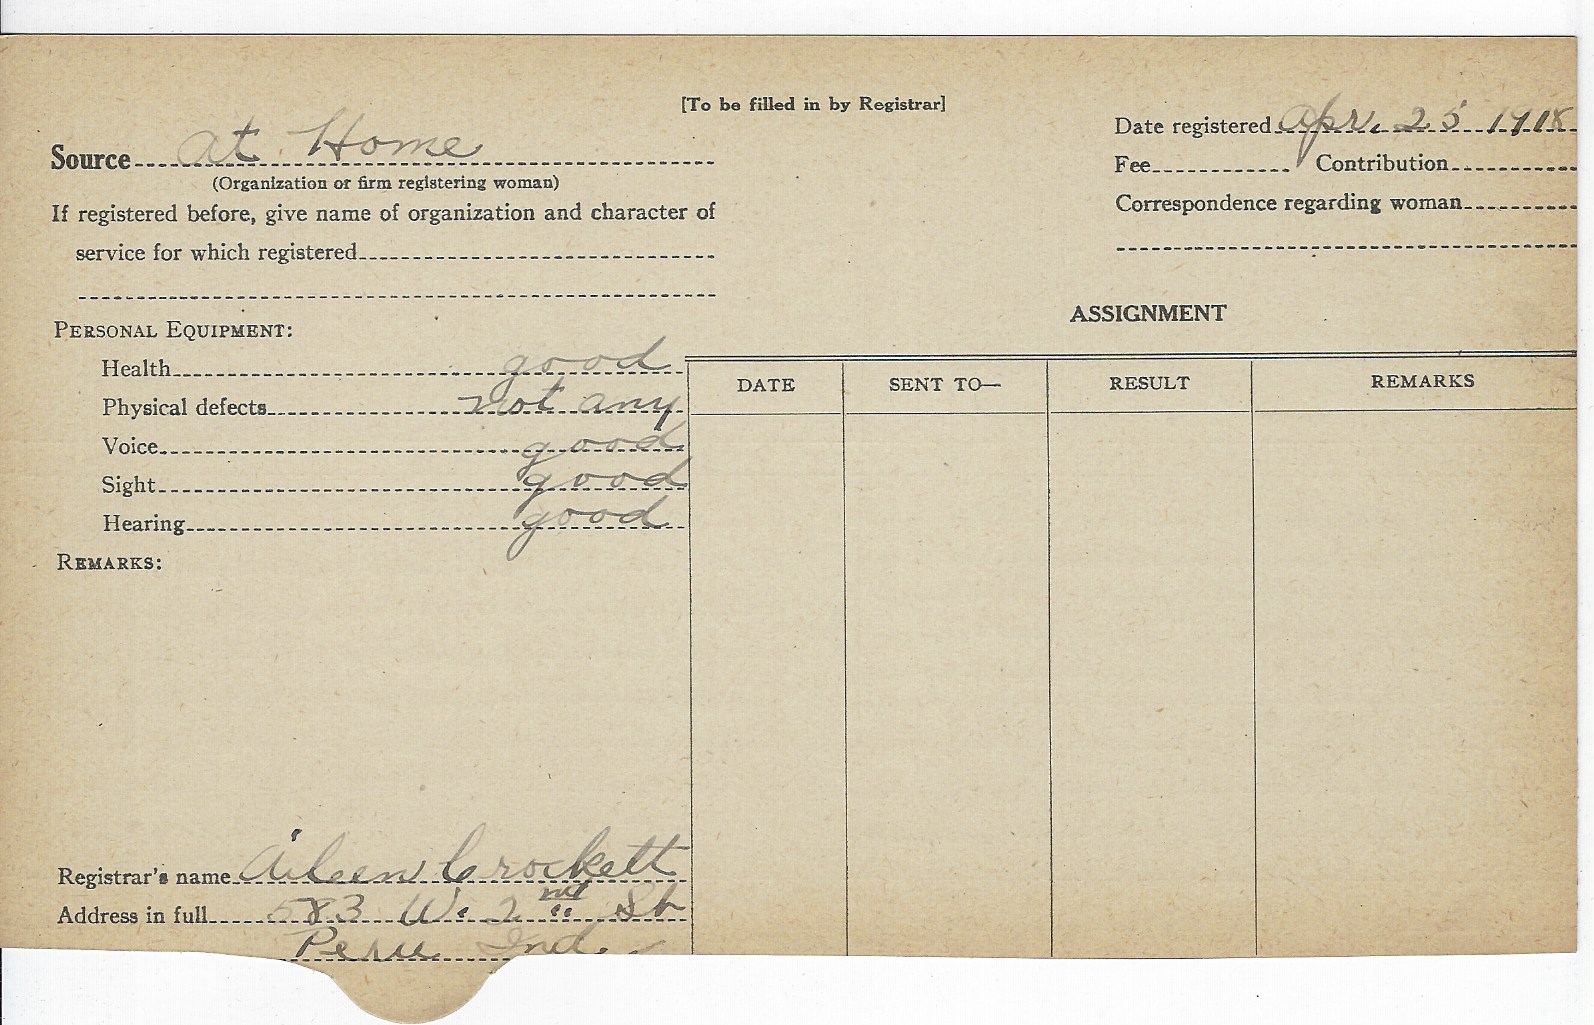 [To be filled in by Registrar]
Source at Home
(Organization or firm registering woman)
If registered before, give name of organization and character of
service for which registered
PERSONAL EQUIPMENT:
Health good
Physical defects not any
Voice good
Sight good
Hearing good
REMARKS:
Registrar's name Aileen Crockett
Address in full 583 W. 2nd St
Peru Ind.
Date registered Apr. 25 1918
Fee Contribution
Correspondence regarding woman
ASSIGNMENT
DATE SENT TO— RESULT REMARKS